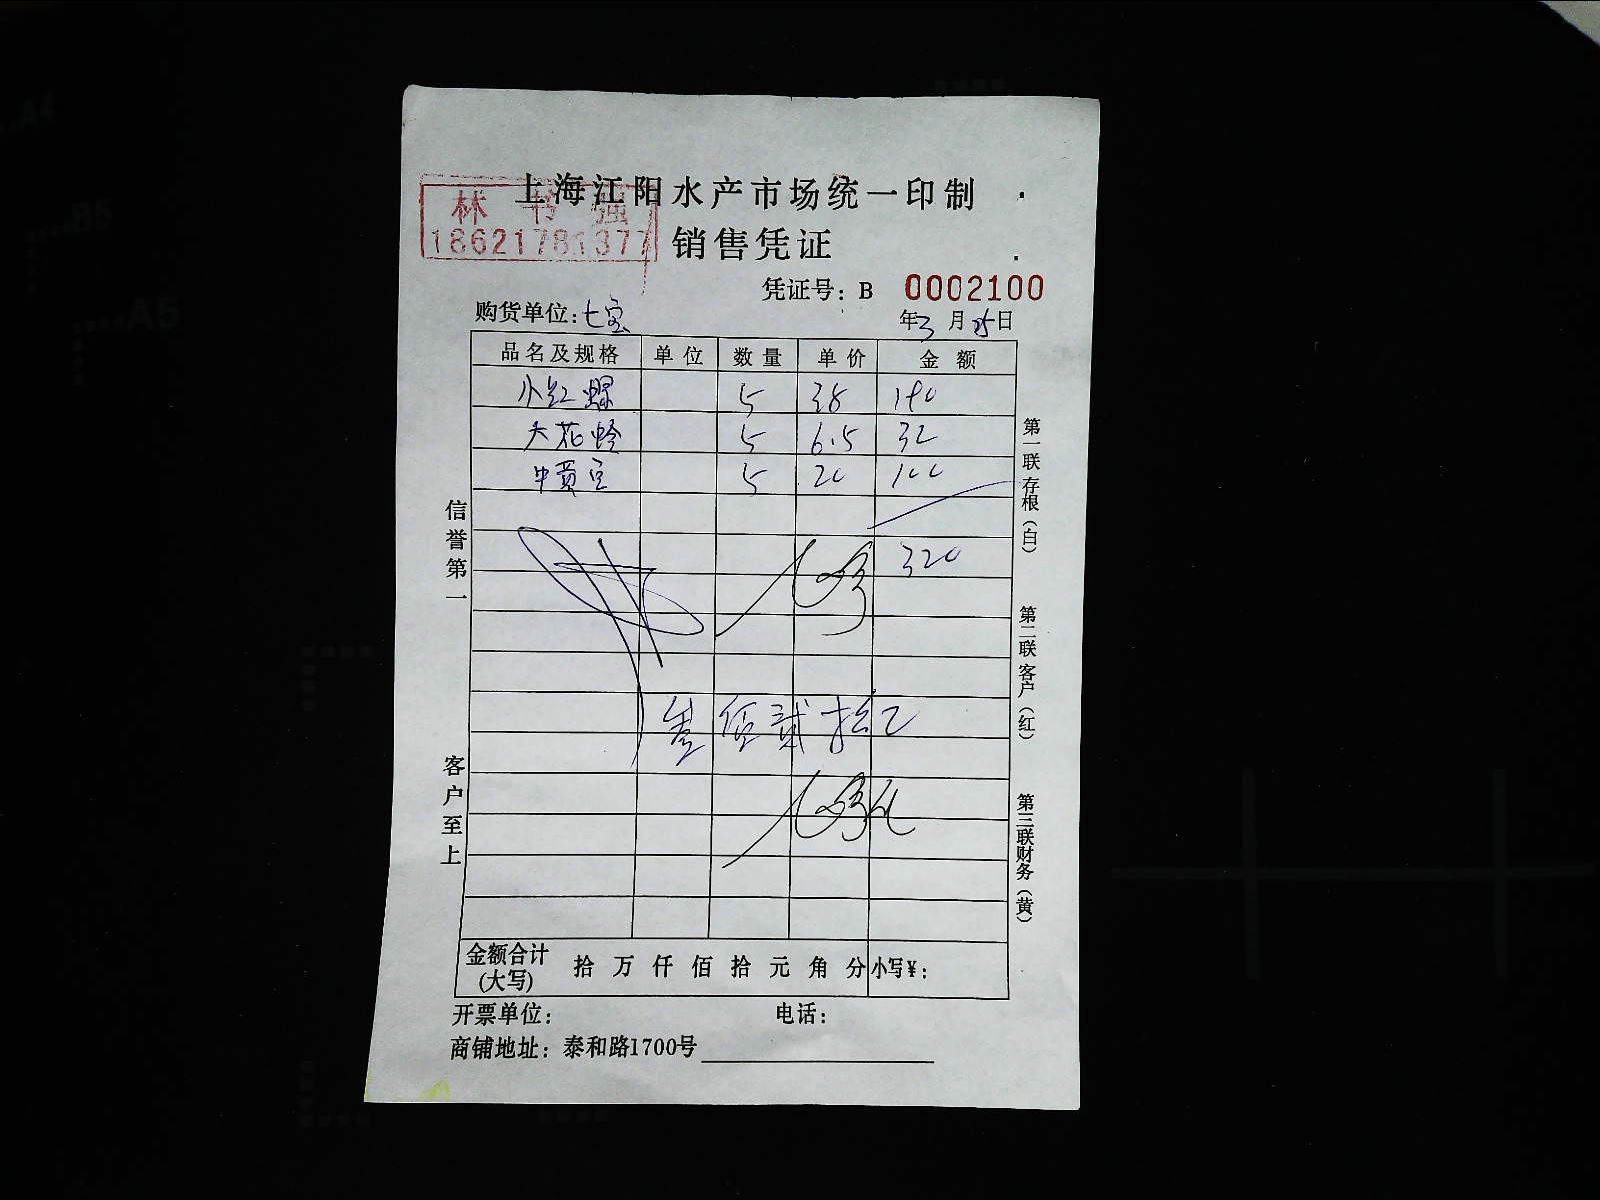 上海江阳水产市场统一印制
林书强
18621781377
销售凭证
凭证号：B 0002100
购货单位：七宝 年3月25日
品名及规格 单位 数量 单价 金额
小红螺 5 38 190
大花蛤 5 6.5 32
中黄豆 5 20 100
320
叁佰贰拾元
金额合计(大写) 拾 万 仟 佰 拾 元 角 分 小写¥：
开票单位： 电话：
商铺地址：泰和路1700号
信誉第一
客户至上
第一联 存根（白）
第二联 客户（红）
第三联 财务（黄）
A4
B5
A5